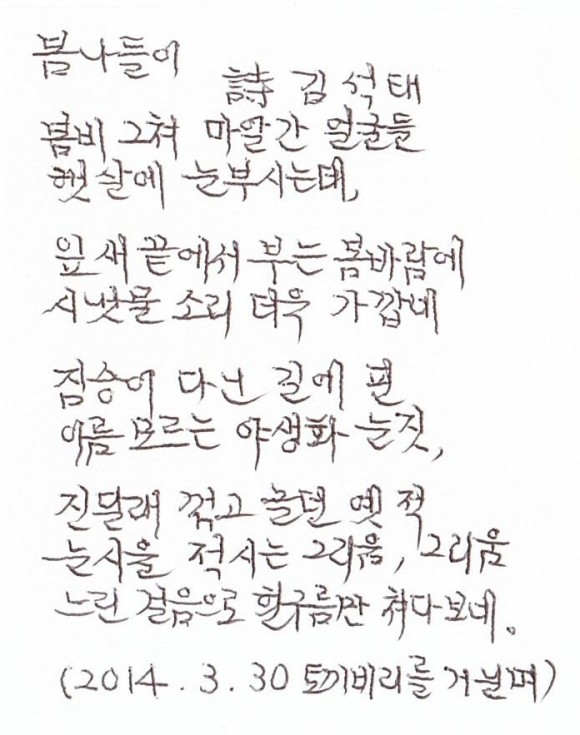 봄나들이
詩 김석태
봄비 그쳐 마알간 얼굴들
햇살에 눈부시는데,
잎새 끝에서 부는 봄바람에
시냇물 소리 더욱 가깝네
짐승이 다닌 길에 핀
이름 모르는 야생화 눈짓,
진달래 꺾고 놀던 옛 적
눈시울 적시는 그리움, 그리움
느린 걸음으로 흰구름만 쳐다보네.
(2014.3.30 토끼비리를 거닐며)